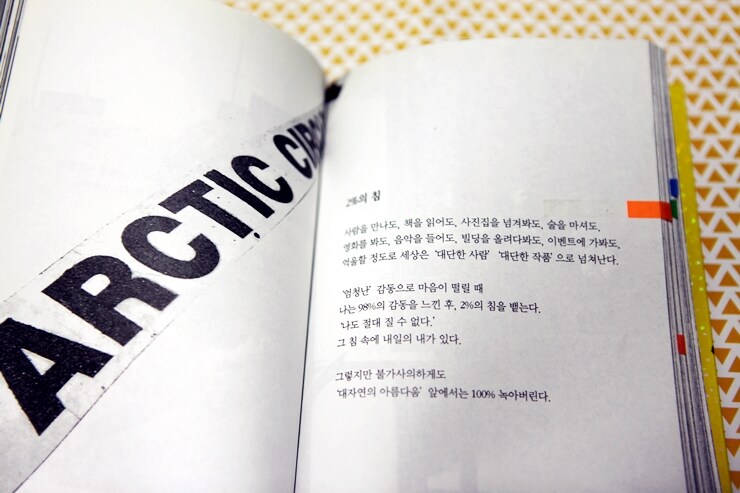 ARCTIC CIRC
2%의 침
사람을 만나도, 책을 읽어도, 사진집을 넘겨봐도, 술을 마셔도,
영화를 봐도, 음악을 들어도, 빌딩을 올려다봐도, 이벤트에 가봐도,
억울할 정도로 세상은 '대단한 사람' '대단한 작품'으로 넘쳐난다.
'엄청난' 감동으로 마음이 떨릴 때
나는 98%의 감동을 느낀 후, 2%의 침을 뱉는다.
'나도 절대 질 수 없다.'
그 침 속에 내일의 내가 있다.
그렇지만 불가사의하게도
'대자연의 아름다움' 앞에서는 100% 녹아버린다.